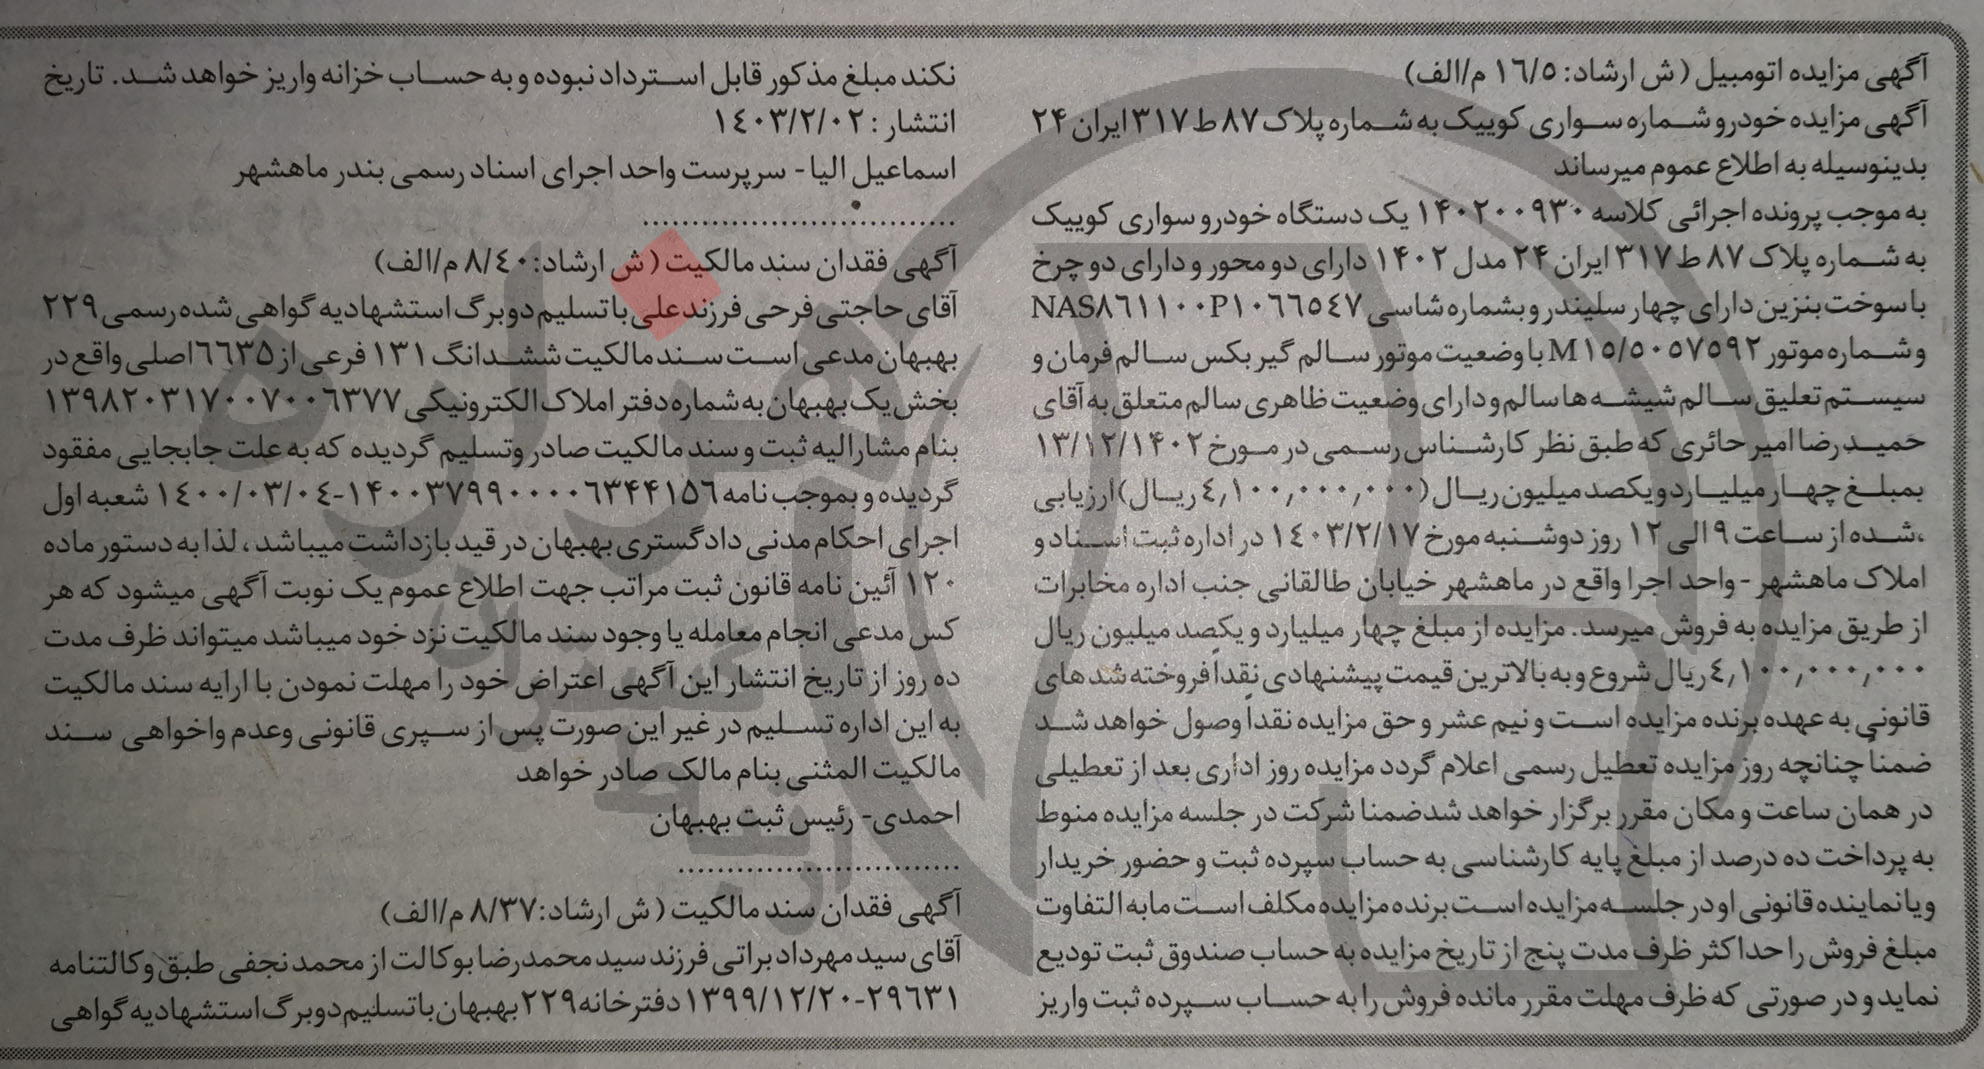 آگهی مزایده اتومبیل (ش ارشاد: ١٦/٥ م/الف)
آگهی مزایده خودرو شماره سواری کوییک به شماره پلاک ۸۷ ط ۳۱۷ ایران ۲۴
بدینوسیله به اطلاع عموم میرساند
به موجب پرونده اجرائی کلاسه ۱۴۰۲۰۰۹۳۰ یک دستگاه خودرو سواری کوییک
به شماره پلاک ۸۷ ط ۳۱۷ ایران ۲۴ مدل ۱۴۰۲ دارای دو محور و دارای دو چرخ
با سوخت بنزین دارای چهار سلیندر و بشماره شاسی NAS٨٦١١٠٠P١٠٦٦٥٤٧
و شماره موتور M١٥/٥٠٥٧٥٩٢ با وضعیت موتور سالم گیر بکس سالم فرمان و
سیستم تعلیق سالم شیشه ها سالم و دارای وضعیت ظاهری سالم متعلق به آقای
حمید رضا امیر حائری که طبق نظر کارشناس رسمی در مورخ ۱۳/۱۲/۱۴۰۲
بمبلغ چهار میلیارد و یکصد میلیون ریال (٤,١٠٠,٠٠٠,٠٠٠ ریال) ارزیابی
،شده از ساعت ۹ الی ۱۲ روز دوشنبه مورخ ١٤٠٣/٢/١٧ در اداره ثبت اسناد و
املاک ماهشهر - واحد اجرا واقع در ماهشهر خیابان طالقانی جنب اداره مخابرات
از طریق مزایده به فروش میرسد. مزایده از مبلغ چهار میلیارد و یکصد میلیون ریال
٤,١٠٠,٠٠٠,٠٠٠ ریال شروع و به بالاترین قیمت پیشنهادی نقداً فروخته شد های
قانونی به عهده برنده مزایده است و نیم عشر و حق مزایده نقداً وصول خواهد شد
ضمناً چنانچه روز مزایده تعطیل رسمی اعلام گردد مزایده روز اداری بعد از تعطیلی
در همان ساعت و مکان مقرر برگزار خواهد شد ضمنا شرکت در جلسه مزایده منوط
به پرداخت ده درصد از مبلغ پایه کارشناسی به حساب سپرده ثبت و حضور خریدار
و یا نماینده قانونی او در جلسه مزایده است برنده مزایده مکلف است ما به التفاوت
مبلغ فروش را حداکثر ظرف مدت پنج از تاریخ مزایده به حساب صندوق ثبت تودیع
نماید و در صورتی که ظرف مهلت مقرر مانده فروش را به حساب سپرده ثبت واریز
نکند مبلغ مذکور قابل استرداد نبوده و به حساب خزانه واریز خواهد شد. تاریخ
انتشار : ١٤٠٣/٢/٠٢
اسماعیل الیا - سرپرست واحد اجرای اسناد رسمی بندر ماهشهر
................................
آگهی فقدان سند مالکیت (ش ارشاد: ٨/٤٠ م/الف)
آقای حاجتی فرحی فرزند علی با تسلیم دو برگ استشهادیه گواهی شده رسمی ۲۲۹
بهبهان مدعی است سند مالکیت ششدانگ ۱۳۱ فرعی از ٦٦٣٥ اصلی واقع در
بخش یک بهبهان به شماره دفتر املاک الکترونیکی ۱۳۹۸۲۰۳۱۷۰۰۷۰۰۶۳۷۷
بنام مشارالیه ثبت و سند مالکیت صادر و تسلیم گردیده که به علت جابجایی مفقود
گردیده و بموجب نامه ۱۴۰۰۳۷۹۹۰۰۰۰۶۳۴۴۱۵۶-١٤٠٠/٠٣/٠٤ شعبه اول
اجرای احکام مدنی دادگستری بهبهان در قید بازداشت میباشد ، لذا به دستور ماده
۱۲۰ آئین نامه قانون ثبت مراتب جهت اطلاع عموم یک نوبت آگهی میشود که هر
کس مدعی انجام معامله یا وجود سند مالکیت نزد خود میباشد میتواند ظرف مدت
ده روز از تاریخ انتشار این آگهی اعتراض خود را مهلت نمودن با ارایه سند مالکیت
به این اداره تسلیم در غیر این صورت پس از سپری قانونی وعدم واخواهی سند
مالکیت المثنی بنام مالک صادر خواهد
احمدی - رئیس ثبت بهبهان
.............................
آگهی فقدان سند مالکیت (ش ارشاد: ۸/۳۷ م/الف)
آقای سید مهرداد براتی فرزند سید محمدرضا بوکالت از محمد نجفی طبق وکالتنامه
۲۹۶۳۱-۱۳۹۹/۱۲/۲۰ دفترخانه ۲۲۹ بهبهان با تسلیم دو برگ استشهادیه گواهی